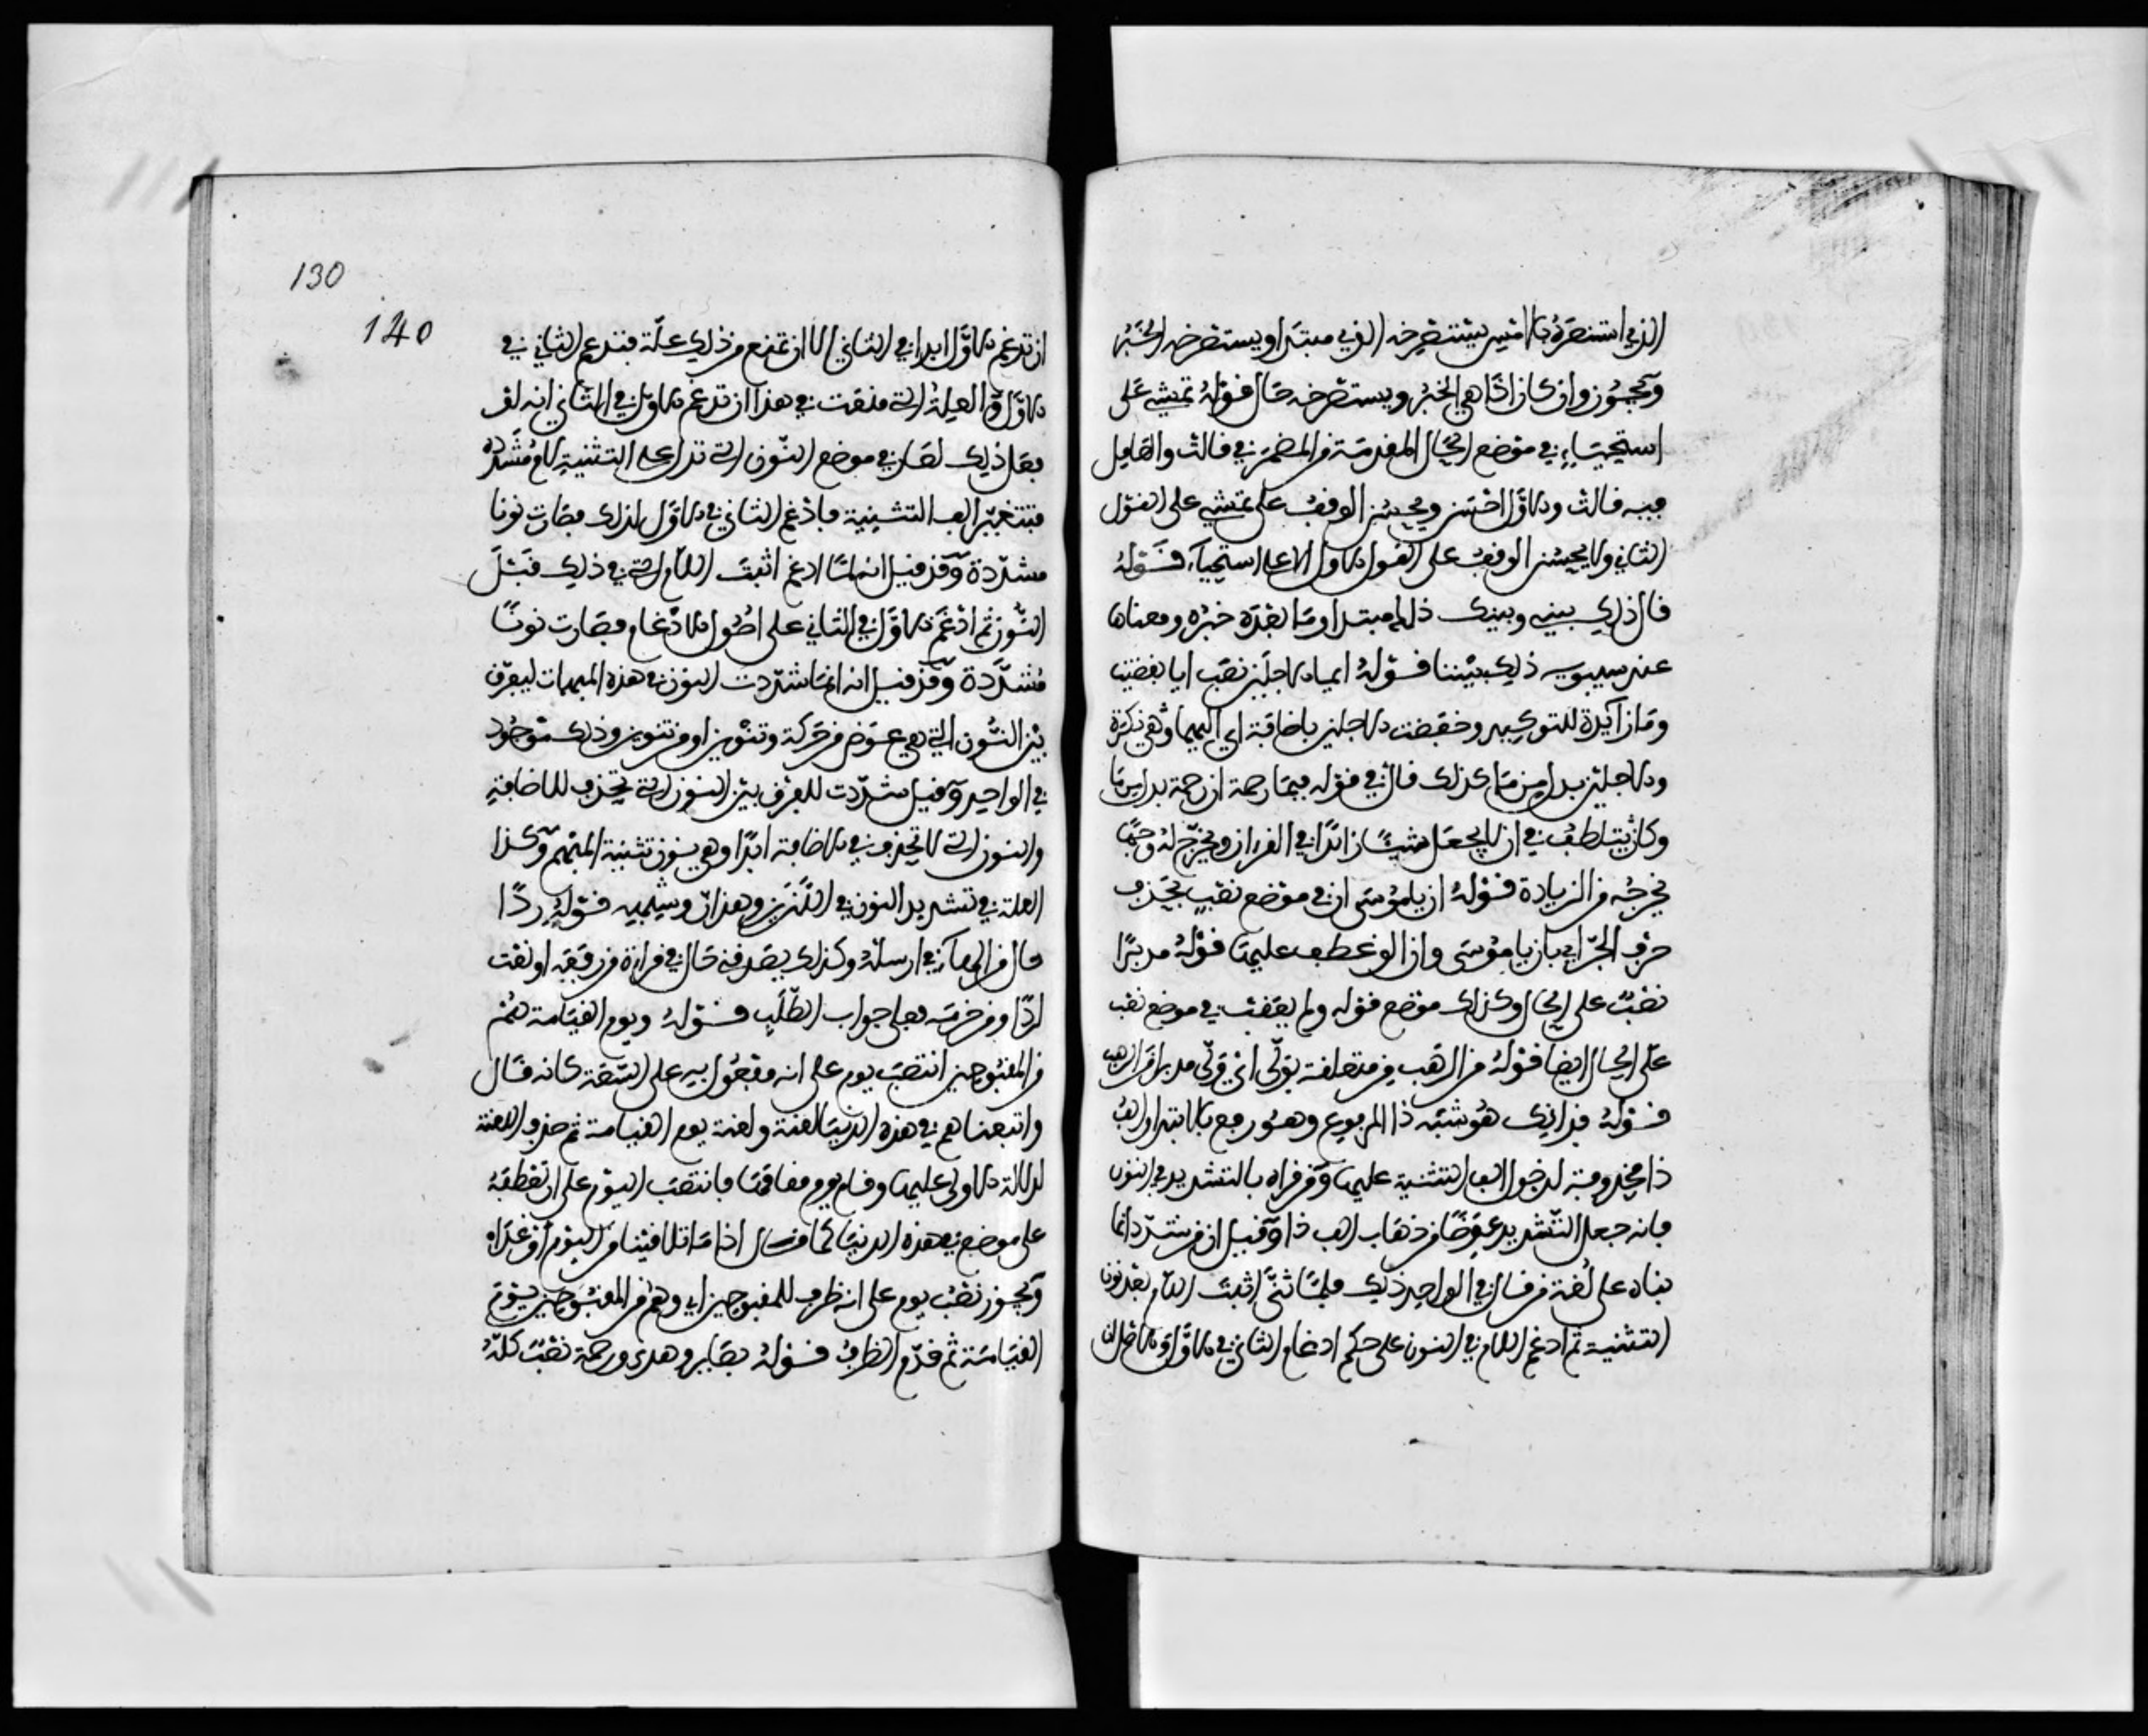 الذي استنصره بالامس يستصرخه الذي مبتدا ويستصرخه الخبر
ويجوز ان كان اذا هي الخبر ويستصرخه حال قوله تمشي على
استحياء في موضع الحال المقدمة من المضمر في قالت والعامل
فيه قالت والاول احسن ويحسن الوقف على تمشي على القول
الثاني ولا يحسن الوقف على القول الاول الا على استحياء قوله
قال ذلك بيني وبينك ذلك مبتدا وما بعده خبره ومعناها
عند سيبويه ذلك بيننا قوله ايما الاجلين نصب ايا بقضيت
وما زائدة للتوكيد وخفضت الاجلين باضافة اي اليهما وهي نكرة
والاجلين بدل من ما كذلك قال في قوله فبما رحمة ان رحمة بدل من ما
وكان يتلطف في ان لا يجعل شيئا زائدا في القرءان ويخرج له وجها
يخرجه من الزيادة قوله ان يا موسى ان في موضع نصب بحذف
حرف الجر اي بان يا موسى وان الق عطف عليها قوله مدبرا
نصب على الحال وكذلك موضع قوله ولم يعقب في موضع نصب
على الحال ايضا قوله من الرهب من متعلقة بولى اي ولى مدبرا من الرهب
قوله فذانك هو تثنية ذا المرفوع وهو رفع بالابتدا والف
ذا محذوفة لدخول الف التثنية عليها ومن قراه بالتشديد في النون
فانه جعل التشديد عوضا من ذهاب الف ذا وقيل ان من شدد انما
بناه على لغة من قال في الواحد ذلك فلما ثنى اثبت اللام بعد نون
التثنية ثم ادغم اللام في النون على حكم ادغام الثاني في الاول والاصل ان
130
140
ان تدغم الاول ابدا في الثاني الا ان تمنع من ذلك علة فتدغم الثاني في
الاول والعلة التي منعت في هذا ان تدغم الاول في الثاني انه لو
فعل ذلك لصار في موضع النون التي تدل على التثنية لام مشددة
فيتغير لفظ التثنية فادغم الثاني في الاول لذلك فصارت نونا
مشددة وقد قيل انه لما ادغم اثبت اللام التي في ذلك قبل
النون ثم ادغم الاول في الثاني على اصول الادغام فصارت نونا
مشددة وقد قيل انه انما شددت النون في هذه المبهمات ليفرق
بين النون التي هي عوض من حركة وتنوين او من تنوين وذلك موجود
في الواحد وقيل شددت للفرق بين النون التي تحذف للاضافة
والنون التي لا تحذف في الاضافة ابدا وهي نون تثنية المبهم وكذا
العلة في تشديد النون في اللذين وهذان وشبهه قوله ردا
حال من الهاء في ارسله وكذلك يصدقني حال في قراءة من رفعه او نعت
لردا ومن جزمه فعلى جواب الطلب قوله ويوم القيامة هم
من المقبوحين انتصب يوم على انه مفعول به على السعة كانه قال
واتبعناهم في هذه الدنيا لعنة ولعنة يوم القيامة ثم حذف اللعنة
لدلالة الاولى عليها وقام يوم مقامها فانتصب اليوم على ان تعطفه
على موضع في هذه الدنيا كما قال اذا ما تلاقينا من اليوم او غدا
ويجوز نصب يوم على انه ظرف للمقبوحين اي وهم من المقبوحين يوم
القيامة ثم قدم الظرف قوله بصاير وهدى ورحمة نصب كله